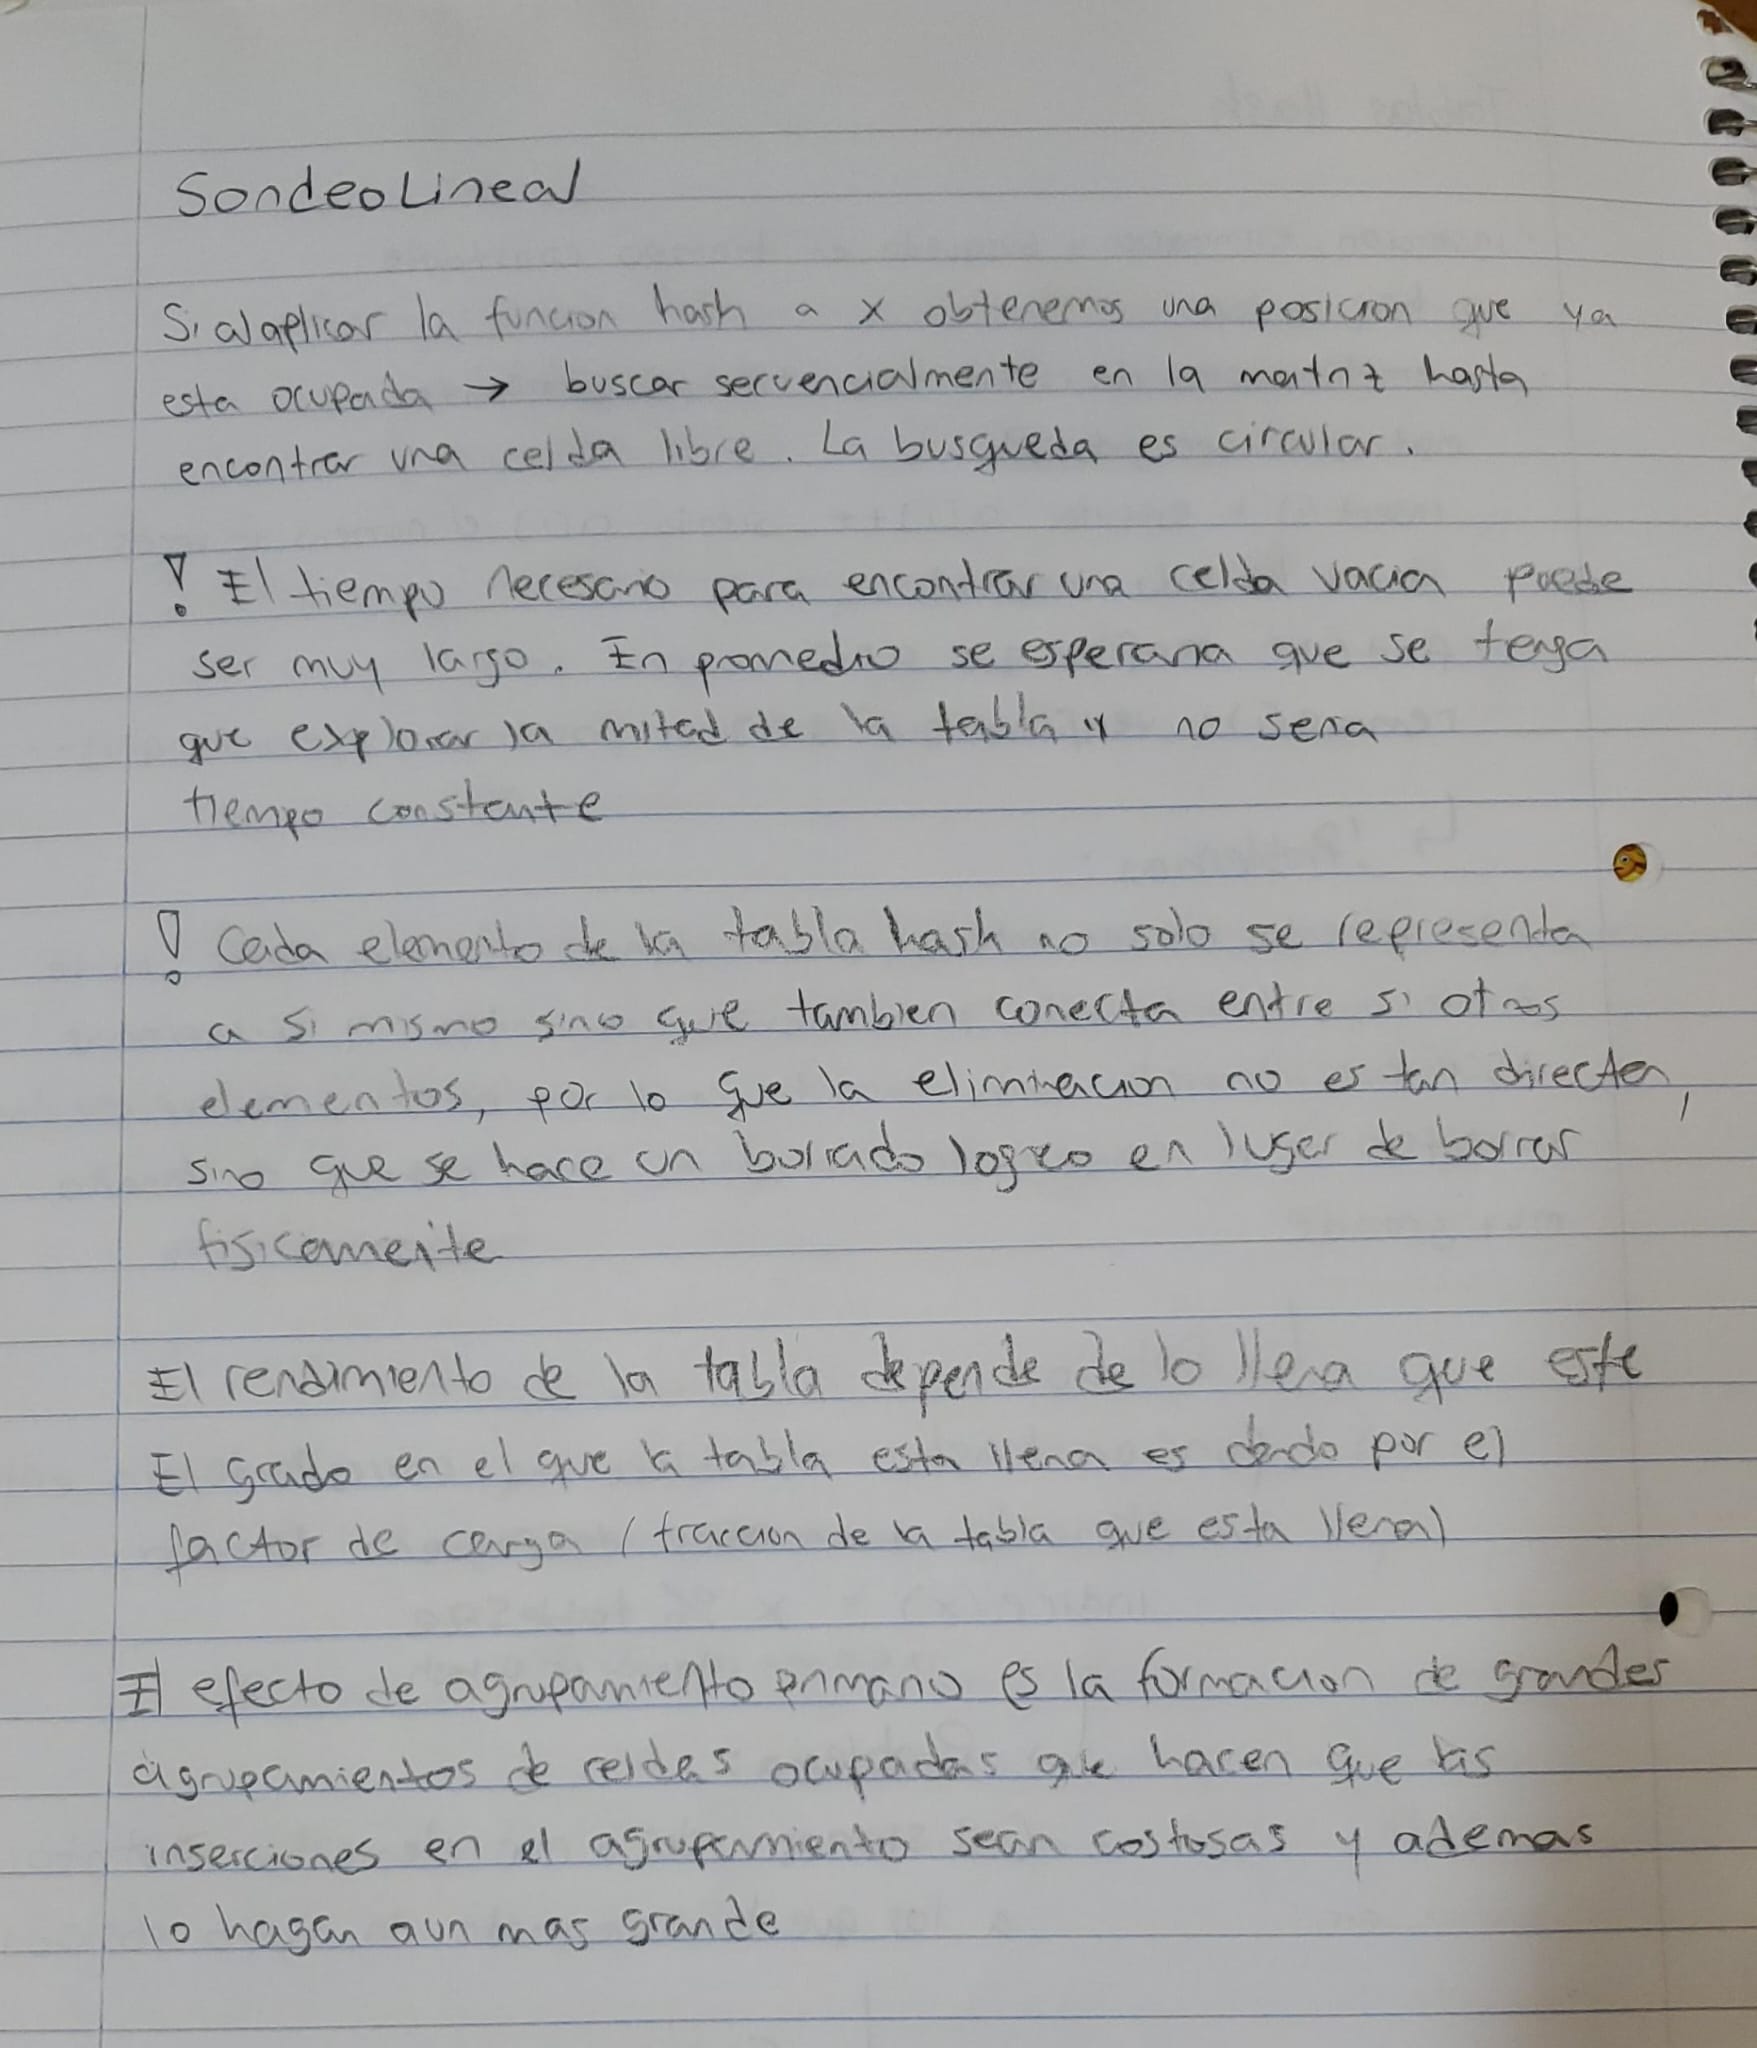 Sondeo Lineal
Si al aplicar la funcion hash a x obtenemos una posicion que ya
esta ocupada → buscar secuencialmente en la matriz hasta
encontrar una celda libre. La busqueda es circular.
! El tiempo necesario para encontrar una celda vacia puede
ser muy largo. En promedio se esperaria que se tenga
que explorar la mitad de la tabla y no seria
tiempo constante
! Cada elemento de la tabla hash no solo se representa
a si mismo sino que tambien conecta entre si otros
elementos, por lo que la eliminacion no es tan directa,
sino que se hace un borrado logico en lugar de borrar
fisicamente
El rendimiento de la tabla depende de lo llena que este
El grado en el que la tabla esta llena es dado por el
factor de carga (fraccion de la tabla que esta llena)
El efecto de agrupamiento primario es la formacion de grandes
agrupamientos de celdas ocupadas que hacen que las
inserciones en el agrupamiento sean costosas y ademas
lo hagan aun mas grande